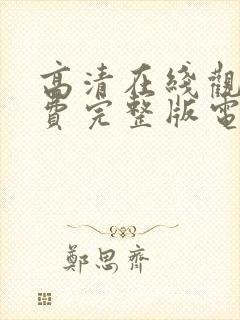 高清在线觀
費完整版電
鄭思齊